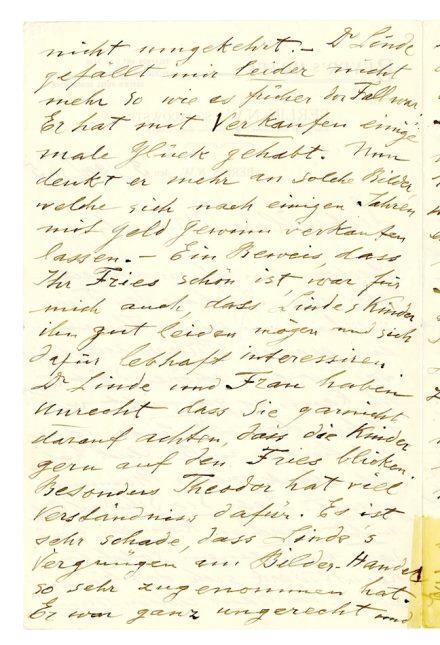 nicht umgekehrt. – Dr Linde
gefällt mir leider nicht
mehr so wie es früher der Fall war
Er hat mit Verkaufen einige
male Glück gehabt. Nun
denkt er mehr an solche Bilder
welche sich nach einigen Jahren
mit geld gewinn verkaufen
lassen. – Ein Beweis, dass
Ihr Fries schön ist, war für
mich auch, dass Lindes Kinder
ihn gut leiden mögen und sich
dafür lebhaft interessiren
Dr Linde und Frau haben
unrecht dass Sie garnicht
darauf achten, dass die Kinder
gern auf den Fries blicken.
Besonders Theodor hat viel
Verständniss dafür. Es ist
sehr schade, dass Linde's
Vergnügen am Bilder-Handel
so sehr zugenommen hat.
Er war ganz ungerecht und